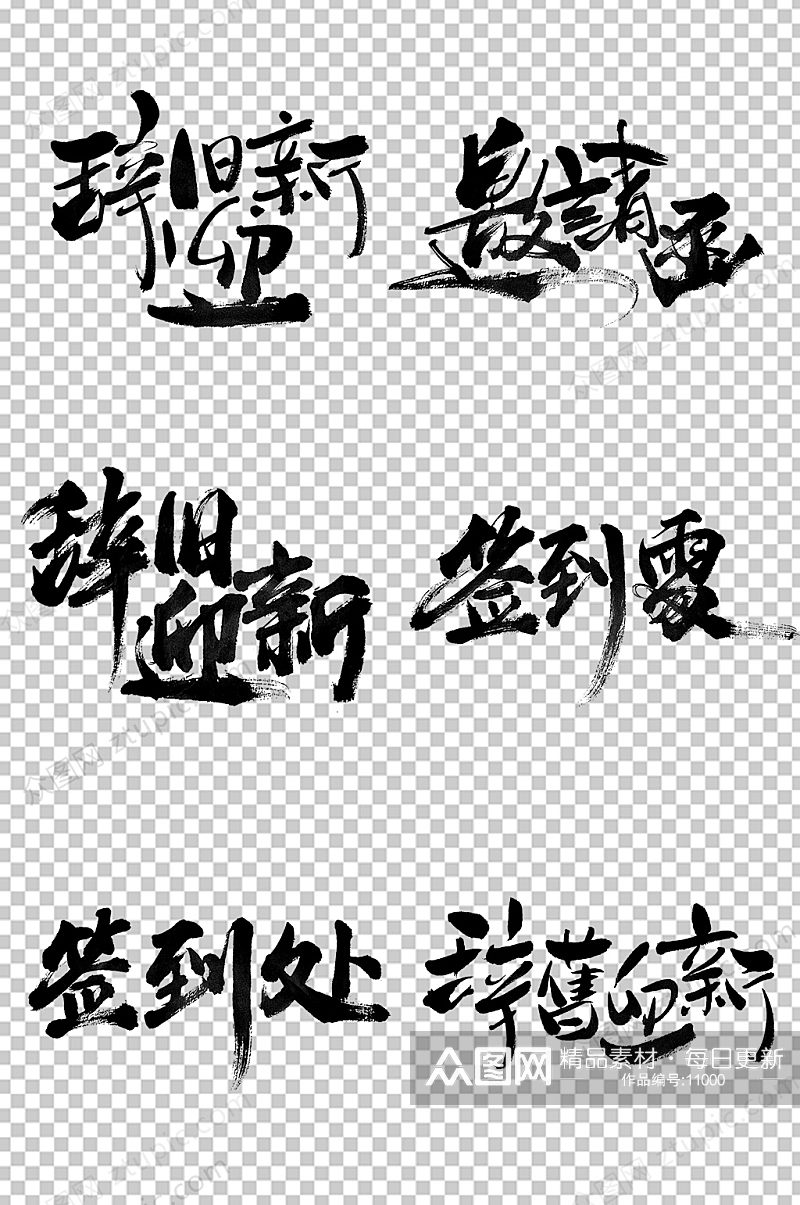 辞旧迎新
邀請函
辞旧迎新
签到處
签到处
辞舊迎新
众图网 精品素材 · 每日更新
作品编号:11000
众图网 ztupic.com